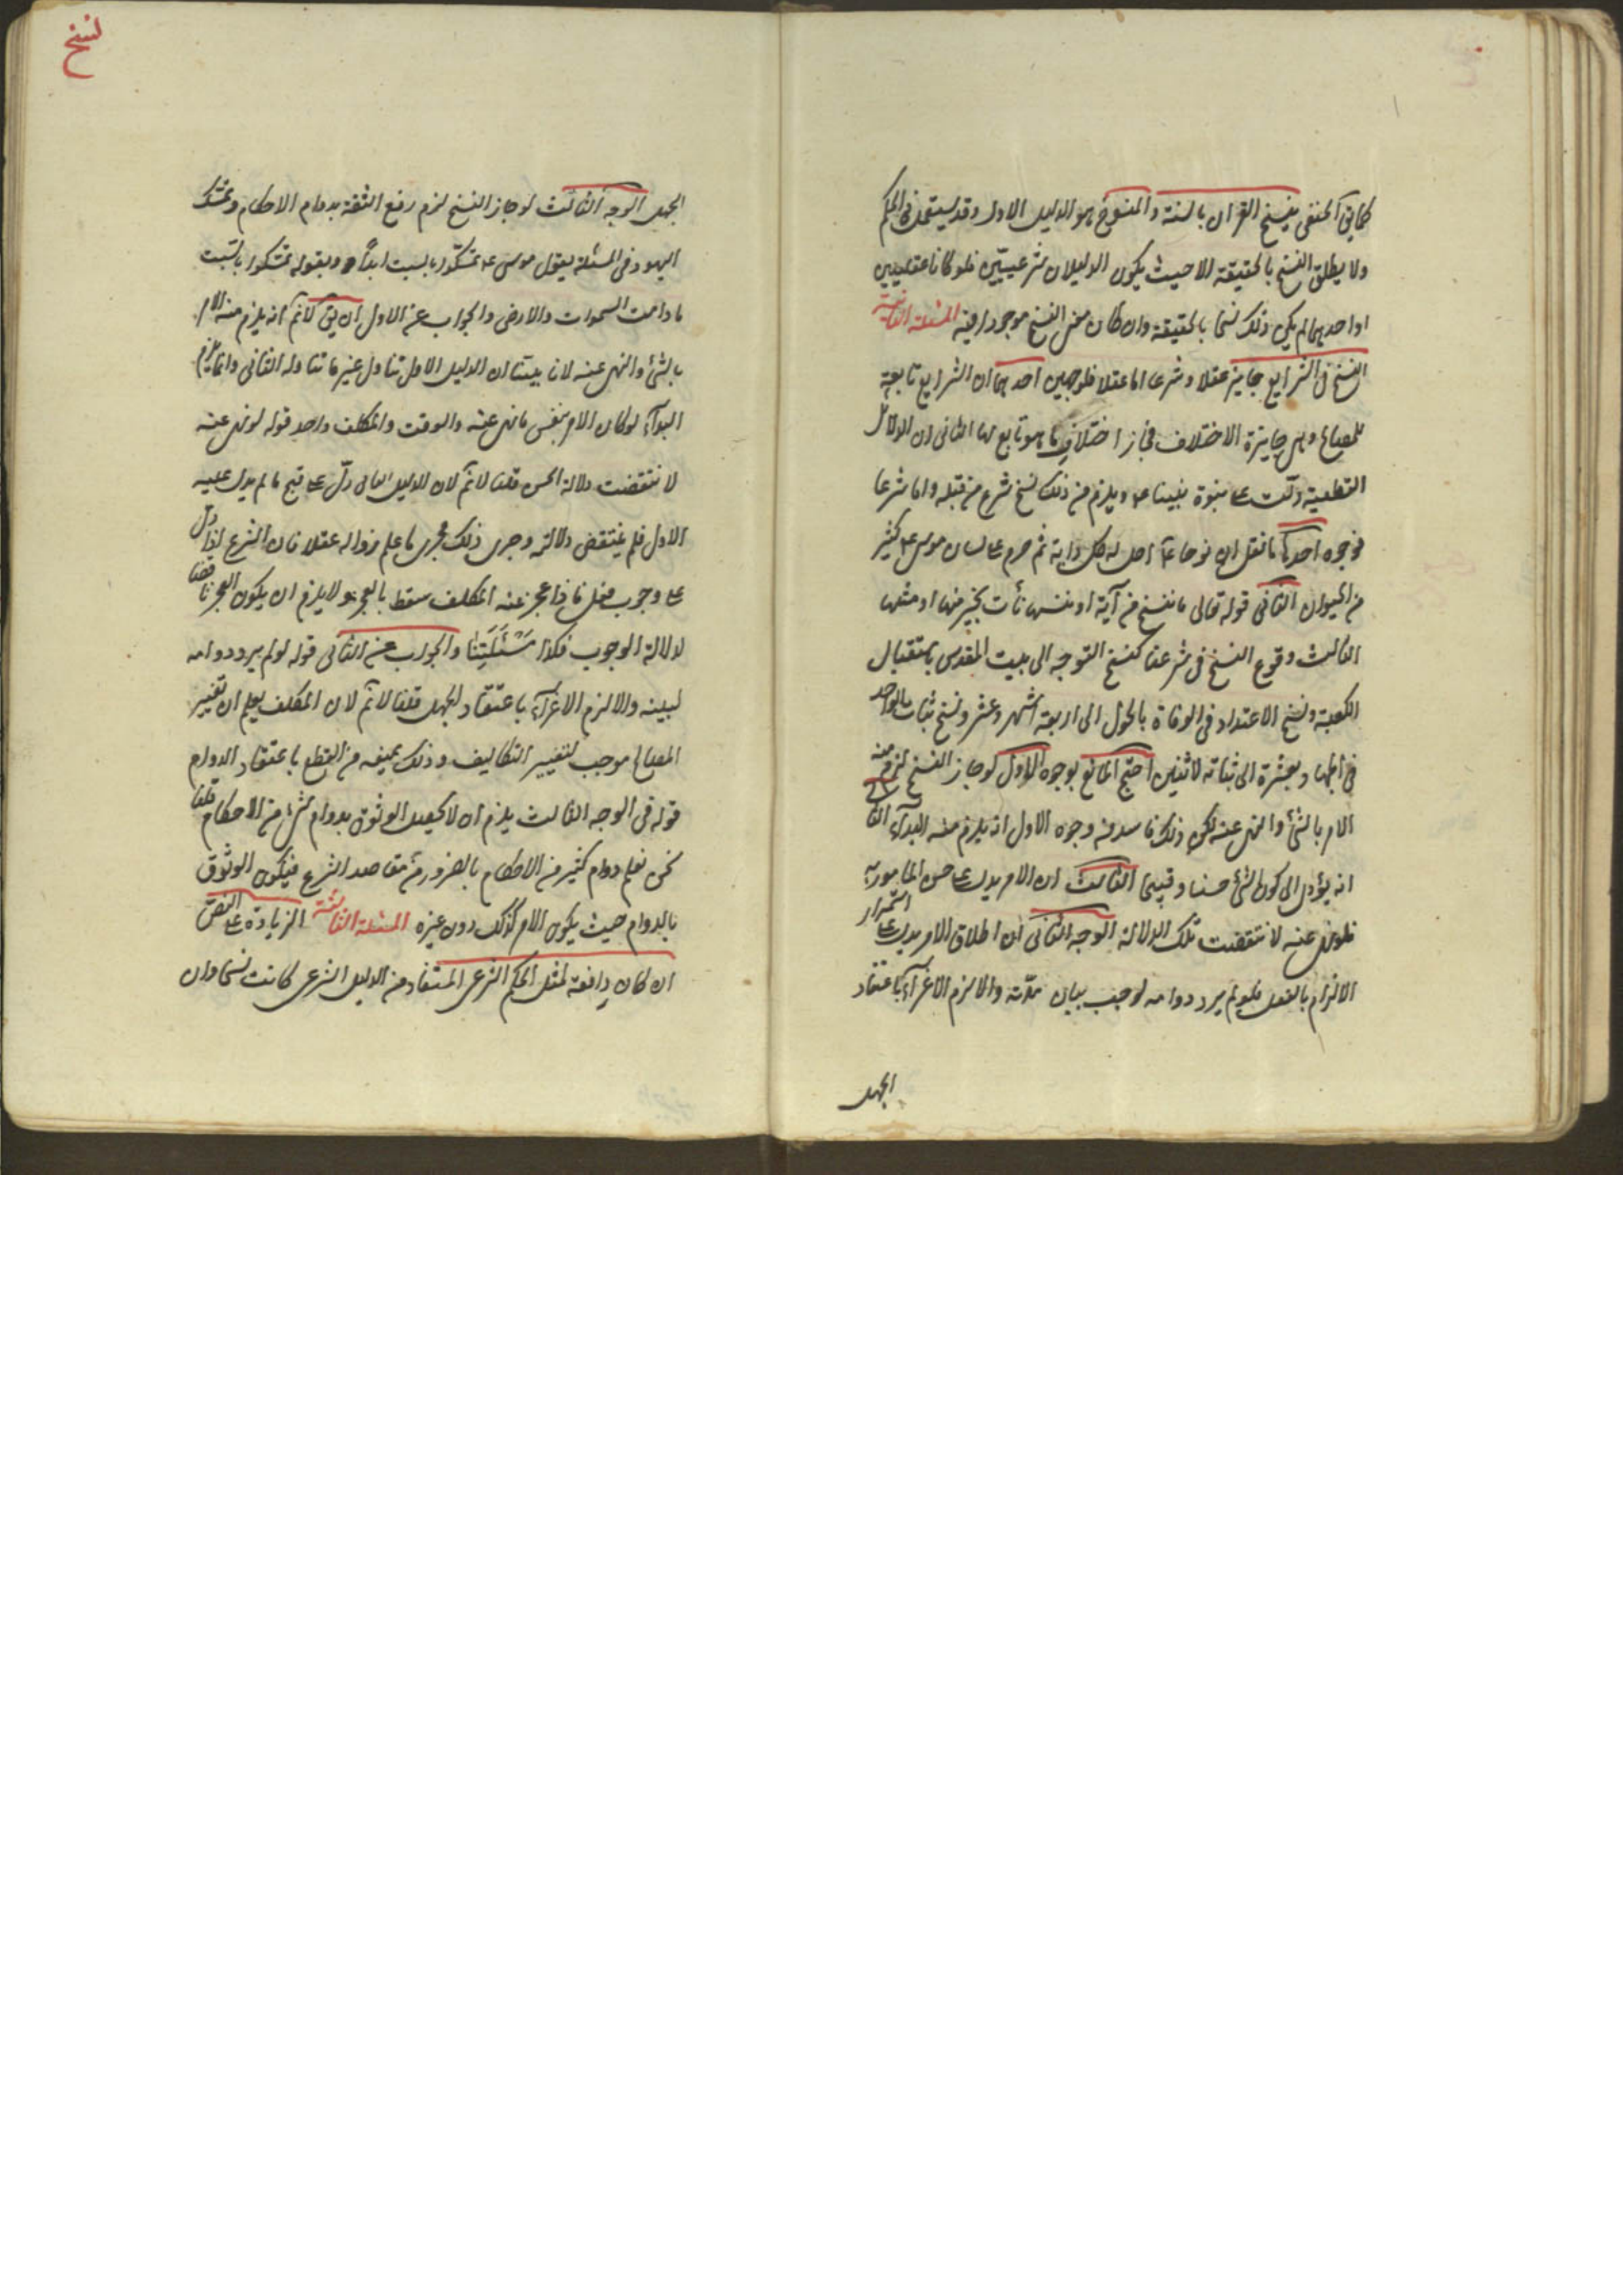 كما يق الحنفى ينسخ القران بالسنة والمنسوخ هو الدليل الاول وقد يستعمل فى الحكم
ولا يطلق النسخ بالحقيقة الا حيث يكون الدليلان شرعيين فلو كانا عقليين
او احدهما لم يكن ذلك نسخا بالحقيقة وان كان معنى النسخ موجودا فيه المسئلة الثانية
النسخ فى الشرايع جايز عقلا وشرعا اما عقلا فلوجهين احدهما ان الشرايع تابعة
للمصالح وهى جايزة الاختلاف فجاز اختلاف ما هو تابع لها الثانى ان الدلائل
القطعية دلت ع نبوة نبينا ع ويلزم من ذلك نسخ شرع من قبله واما شرعا
فوجوه احدها ما نقل ان نوحا ع احل له كل دابة ثم حرم ع لسان موسى ع كثير
من الحيوان الثانى قوله تعالى ما ننسخ من آية او ننسها نأت بخير منها او مثلها
الثالث وقوع النسخ فى شرعنا كنسخ التوجه الى بيت المقدس باستقبال
الكعبة ونسخ الاعتداد فى الوفاة بالحول الى اربعة اشهر وعشر ونسخ ثبات الواحد
فى الجهاد بعشرة الى ثباته لاثنين احتج المانع بوجوه الاول لو جاز النسخ لزم منه
الامر بالشئ والنهى عنه لكن ذلك فاسد من وجوه الاول انه يلزم منه البدآء الثانى
انه يؤدى الى كون الشئ حسنا وقبيحا الثالث ان الامر يدل ع حسن المامور به
فلو نهى عنه لانتقضت تلك الدلالة الوجه الثانى ان اطلاق الامر يدل ع استمرار
الالزام بالفعل فلو لم يرد دوامه لوجب بيان مدته والا لزم الاغرآء باعتقاد
الجهل
نسخ
الجهل الوجه الثالث لو جاز النسخ لزم رفع الثقة بدوام الاحكام وتمسك
اليهود فى المسئلة بقول موسى ع تمسكوا بالسبت ابدا وبقوله تمسكوا بالسبت
ما دامت السموات والارض والجواب عن الاول ان يق لا نم انه يلزم منه الامر
بالشئ والنهى عنه لانا بينا ان الدليل الاول تناول غير ما تناوله الثانى وانما يلزم
البدآء لو كان الامر بنفس ما نهى عنه والوقت والمكلف واحد قوله لو نهى عنه
لانتقضت دلالة الحسن قلنا لا نم لان الدليل الثانى دل ع قبح ما لم يدل عليه
الاول فلم ينتقض دلالته وجرى ذلك مجرى ما علم زواله عقلا فان الشرع اذا دل
ع وجوب فعل فاذا عجز عنه المكلف سقط بالعجز ولا يلزم ان يكون العجز ناقضا
لدلالة الوجوب فكذا مسئلتنا والجواب عن الثانى قوله لو لم يرد دوامه
لبينه والا لزم الاغرآء باعتقاد الجهل قلنا لا نم لان المكلف يعلم ان تغيير
المصالح موجب لتغيير التكاليف وذلك يمنعه من القطع باعتقاد الدوام
قوله فى الوجه الثالث يلزم ان لا يحصل الوثوق بدوام شئ من الاحكام قلنا
نحن نعلم دوام كثير من الاحكام بالضرورة من مقاصد الشرع فيكون الوثوق
بالدوام حيث يكون الامر كذلك دون غيره المسئلة الثالثة الزيادة ع النص
ان كان رافعة لمثل الحكم الشرعى المستفاد من الدليل الشرعى كانت نسخا وان